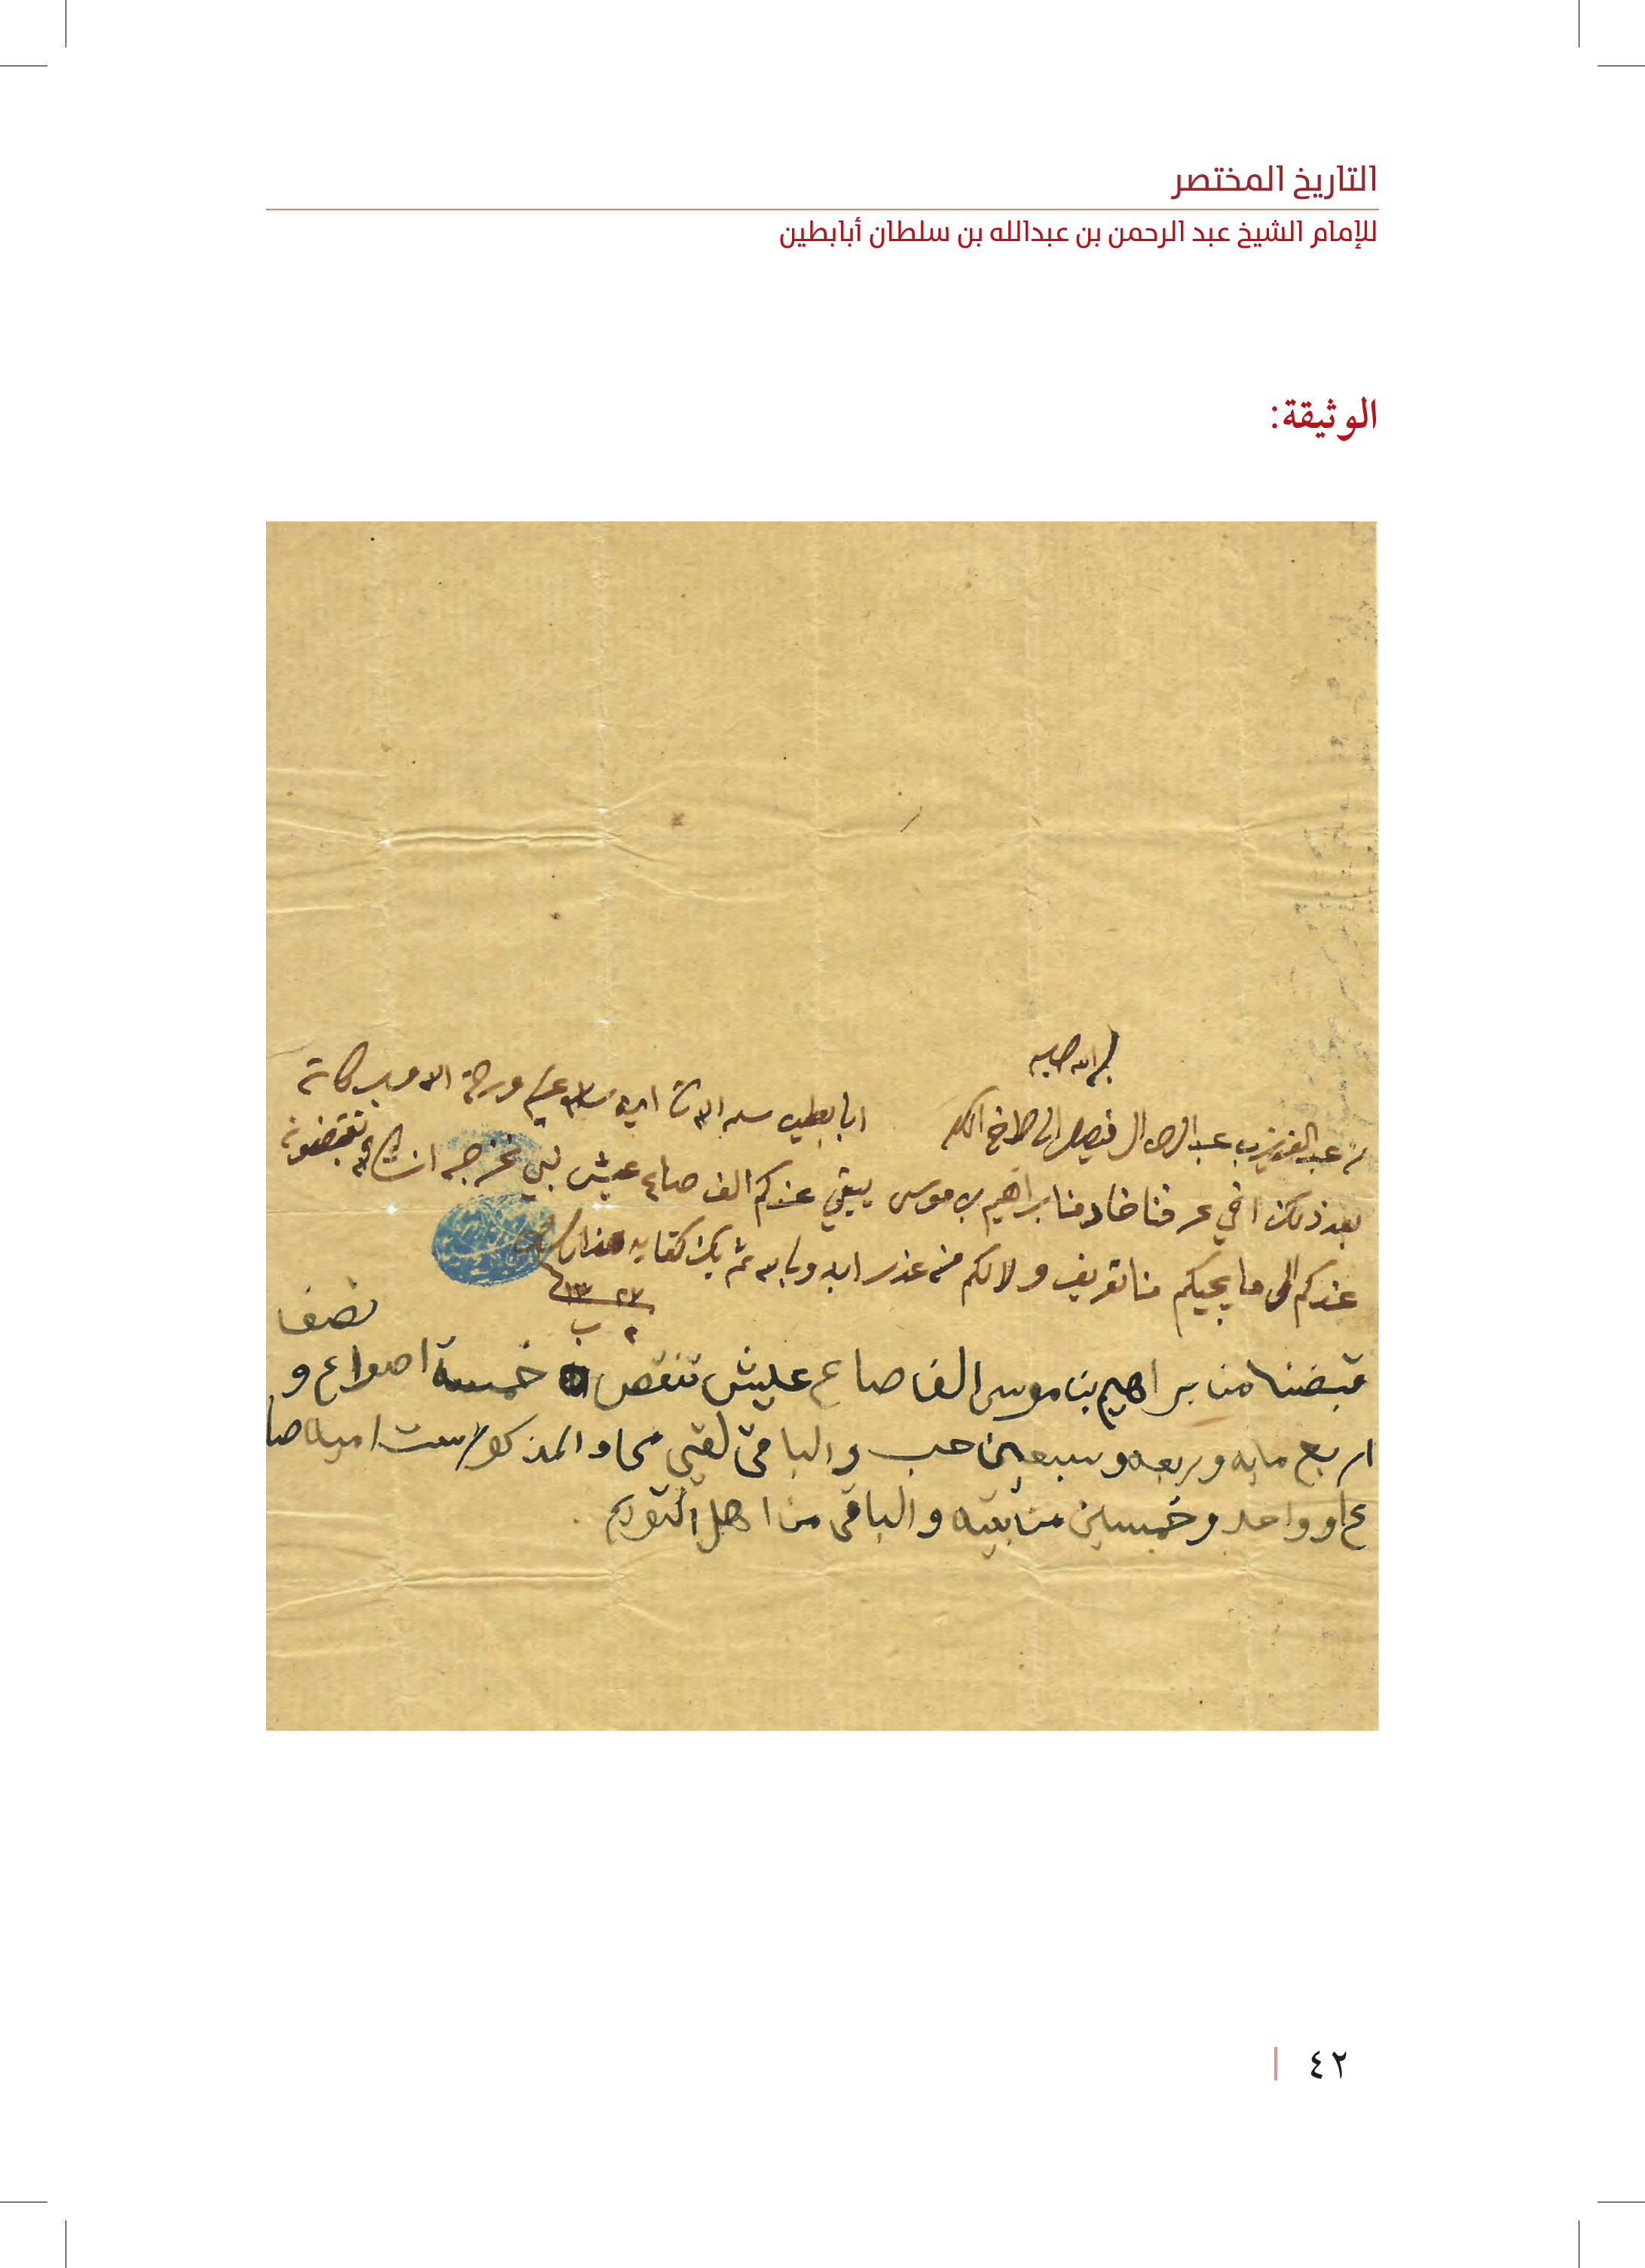 التاريخ المختصر
للإمام الشيخ عبد الرحمن بن عبدالله بن سلطان أبابطين
الوثيقة:
بسم الله
من عبد العزيز بن عبد الرحمن ال فيصل الى الاخ المكرم ابابطين سلمه الله تعالى امين سلام عليكم ورحمة الله وبركاته
بعد ذلك اخي عرفنا خادمنا براهيم بن موسى يبقي عندكم الف صاع عيش نبي نخرجه ان شاء الله تقبضونه
عندكم الى ما يجيكم منا تعريف ولا لكم من عذر ابد وبا يكن كفايه هذا والسلام
٢٧ ١٣
٢ ب
قبضنا من براهيم بن موسى الف صاع عيش تنقص خمسة اصواع ونصف
اربع مايه وربعه وسبعين حب والباقي لقيمي المذكور ست اميه صا
ع وواحد وخمسين من بقيه والباقي من اهل التويم
٤٢